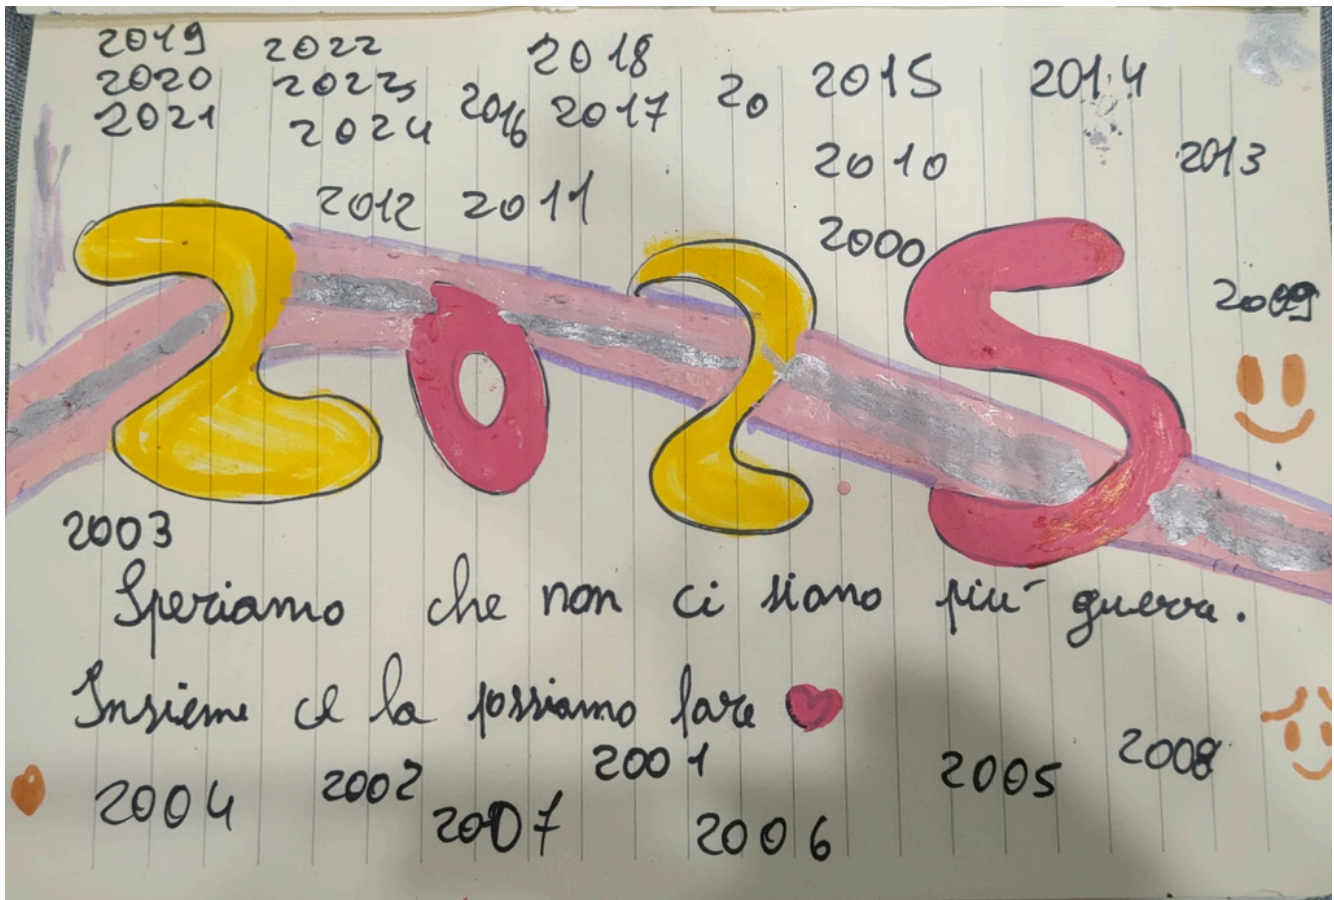 2019 2022 2018
2020 2023 2016 2017 20 2015 2014
2021 2024 2010 2013
2012 2011 2000
2009
2025
2003
Speriamo che non ci siano più guerre.
Insieme ce la possiamo fare
2004 2002 2001 2005 2008
2007 2006